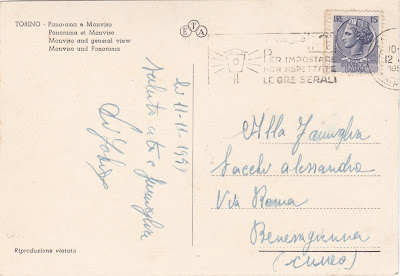 TORINO - Panorama e Monviso
Panorama et Monviso
Monviso and general view
Monviso und Panorama
ETA
LIRE 15
PER IMPOSTARE
NON ASPETTATE
LE ORE SERALI
10-
12
li 11-11-1954
saluto a te e famiglia
Alla Famiglia
Sacchi Alessandro
Via Roma
Benevagienna
(Cuneo)
Riproduzione vietata